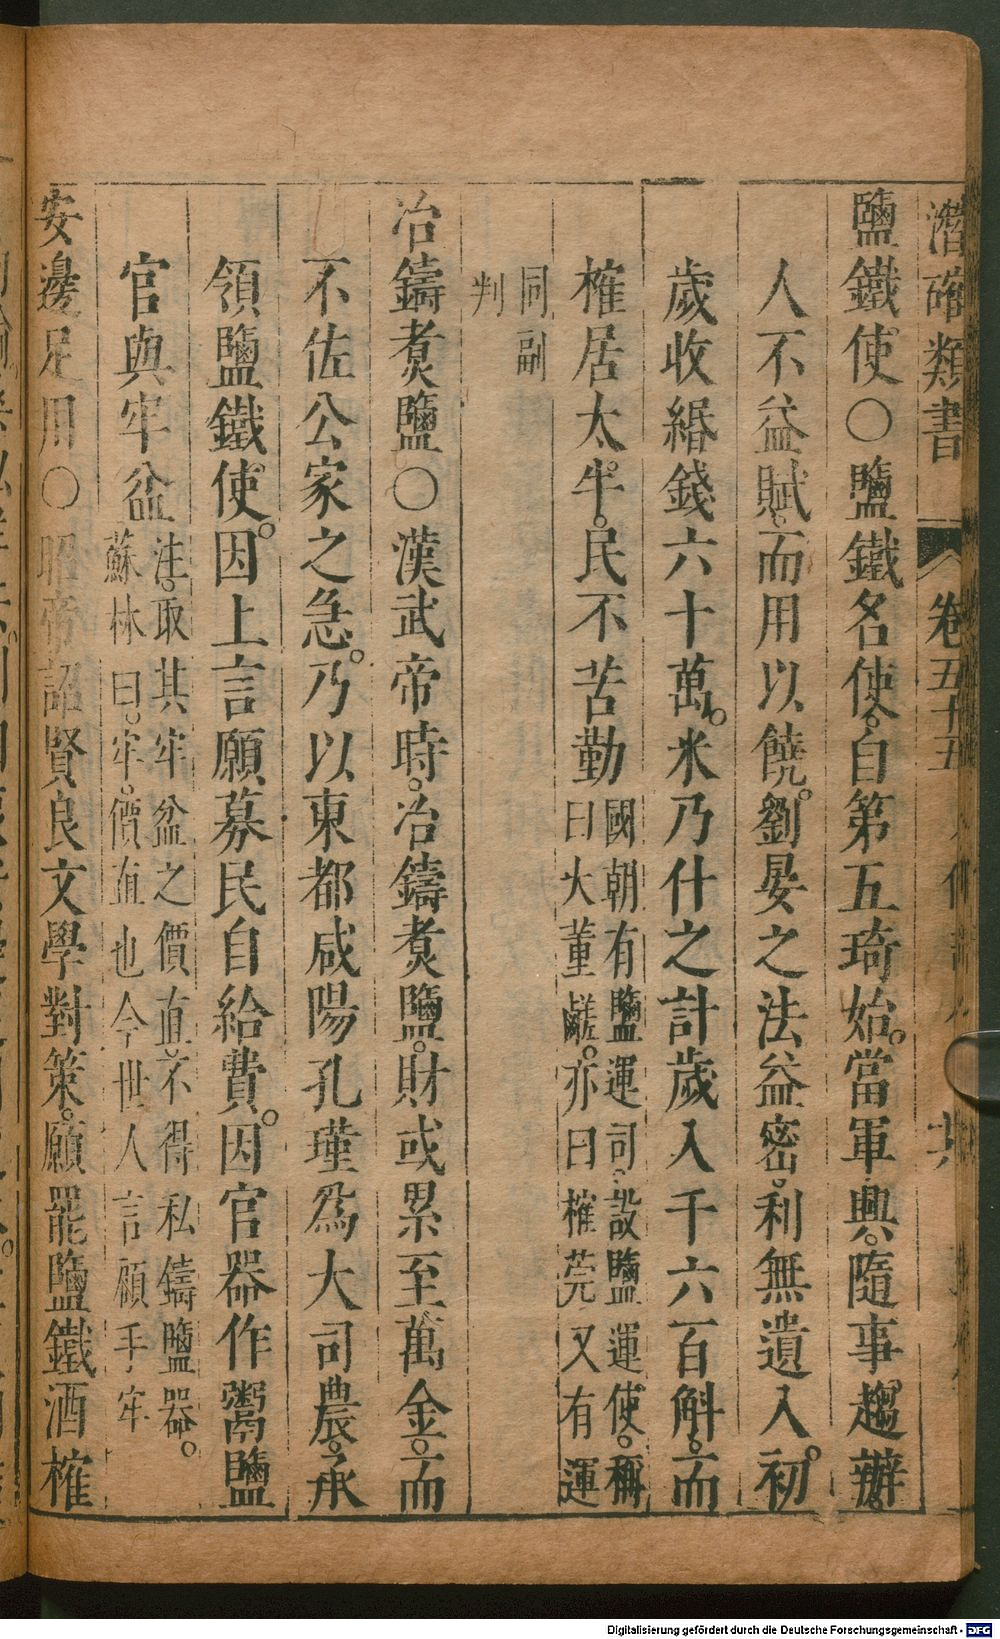 潛確類書 卷五十五
鹽鐵使○鹽鐵名使。自第五琦始。當軍興。隨事趨辦。
人不益賦。而用以饒。劉晏之法益密。利無遺入。初
歲收緡錢六十萬。末乃什之計歲入千六百斛。而
榷居太半。民不苦勤國朝有鹽運司。設鹽運使。稱
曰大董鹺。亦曰榷莞又有運
同副
判
冶鑄煮鹽○漢武帝時。冶鑄煮鹽。財或累至萬金。而
不佐公家之急。乃以東都咸陽孔瑾爲大司農。承
領鹽鐵使。因上言願募民自給費。因官器作鬻鹽
官與牢盆注。取其牢盆之價直。不得私鑄鹽器。
蘇林曰。牢。價直也今世人言顧手牢
安邊足用○昭帝詔賢良文學對策。願罷鹽鐵酒榷
Digitalisierung gefördert durch die Deutsche Forschungsgemeinschaft - DFG